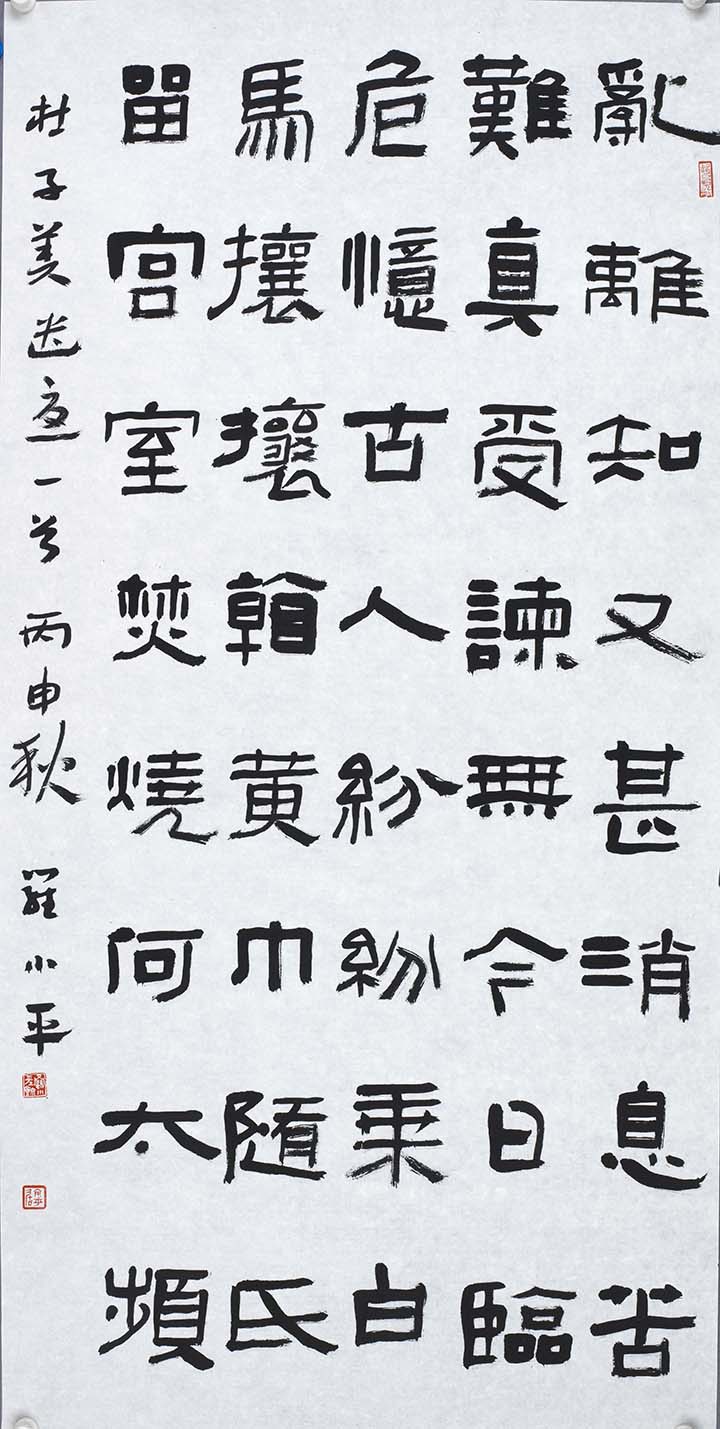 亂離知又甚消息苦
難真受諫無今日臨
危憶古人紛紛乘白
馬攘攘著黄巾随氏
留宫室焚燒何太頻
杜子美遣意一首丙申秋羅小平